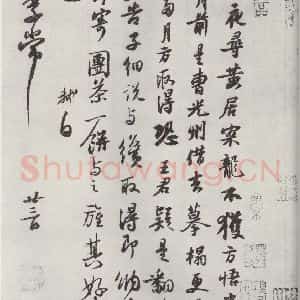 夜尋黄居寀龍不獲方悟
月前是曹光州借去摹搨更
月方取得恐王君疑是翻
告子細說與纔取得即納
寄團茶一餅與之旌其好
軾白 廿三日
季常
Shufawang.CN